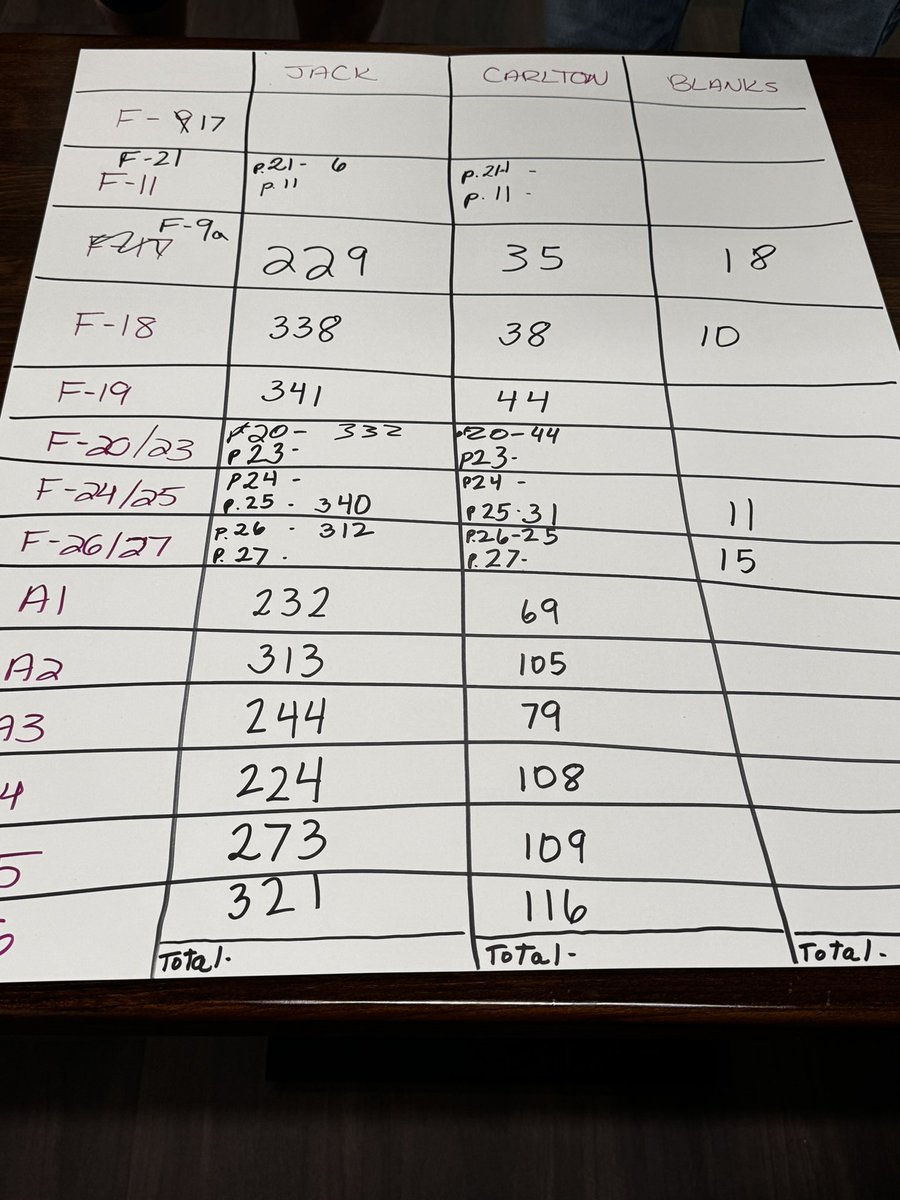 JACK CARLTON BLANKS
F-17
F-21 p.21- 6 p.21 -
F-11 p.11 p.11 -
F-9a
229 35 18
F-18 338 38 10
F-19 341 44
F-20/23 p20- 332 p20-44
p23- p23-
F-24/25 p24 - p24 -
p.25 - 340 p25-31 11
F-26/27 p.26 - 312 p.26-25
p.27- p.27- 15
A1 232 69
A2 313 105
A3 244 79
4 224 108
5 273 109
321 116
Total- Total- Total-